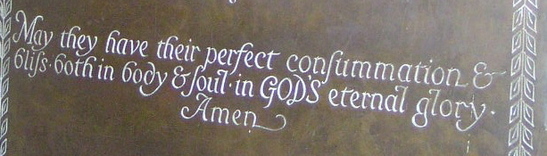 May they have their perfect conſummation &
bliſs· both in body & ſoul· in GOD'S eternal glory·
Amen